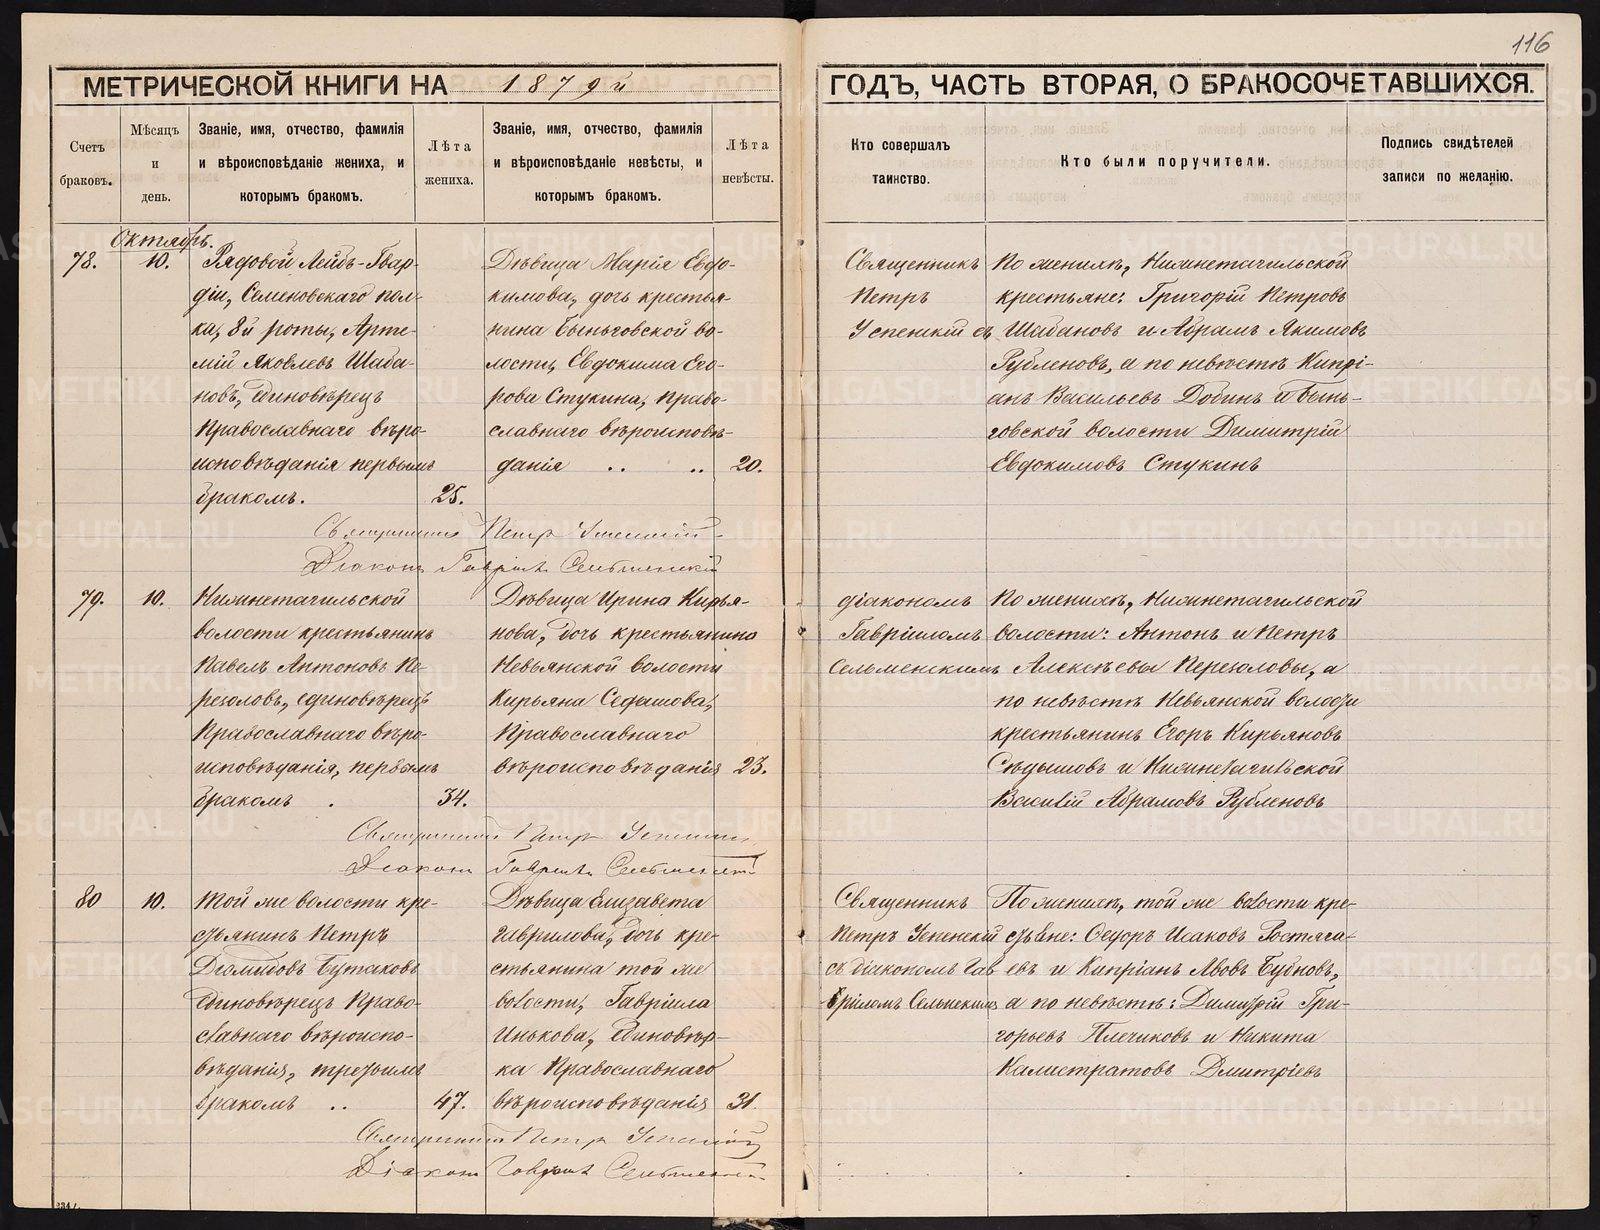 116
МЕТРИЧЕСКОЙ КНИГИ НА 1879й
ГОДЪ, ЧАСТЬ ВТОРАЯ, О БРАКОСОЧЕТАВШИХСЯ.
Счетъ браковъ.
Мѣсяцъ и день.
Званіе, имя, отчество, фамилія
и вѣроисповѣданіе жениха, и
которымъ бракомъ.
Лѣта жениха.
Званіе, имя, отчество, фамилія
и вѣроисповѣданіе невѣсты, и
которымъ бракомъ.
Лѣта невѣсты.
Кто совершалъ
таинство.
Кто были поручители.
Подпись свидѣтелей
записи по желанію.
Октябрь.
78.
10.
Рядовой Лейбъ-Гвар-
діи, Семеновскаго пол-
ка, 8й роты, Арте-
мій Яковлевъ Шаба-
новъ, единовѣрецъ
Православнаго вѣро-
исповѣданія первымъ
бракомъ.
25.
Дѣвица Марія Евдо-
кимова, дочь крестья-
нина Быньговской во-
лости, Евдокима Его-
рова Стукина, Право-
славнаго вѣроисповѣ-
данія
20.
Священникъ
Петръ
Успенскій съ
По женихѣ, Нижнетагильской
крестьяне: Григорій Петровъ
Шабановъ и Абрамъ Якимовъ
Рубленовъ, а по невѣстѣ Кипрі-
анъ Васильевъ Добинъ и Бынь-
говской волости Димитрій
Евдокимовъ Стукинъ
Священникъ Петръ Успенскій
Діаконъ Гавріилъ Сельменскій
79.
10.
Нижнетагильской
волости крестьянинъ
Павелъ Антоновъ Пе-
резоловъ, единовѣрецъ
Православнаго вѣро-
исповѣданія, первымъ
бракомъ
34.
Дѣвица Ирина Кирья-
нова, дочь крестьянина
Невьянской волости
Кирьяна Седышова,
Православнаго
вѣроисповѣданія
23.
діакономъ
Гавріиломъ
Сельменскимъ
По женихѣ, Нижнетагильской
волости: Антонъ и Петръ
Алексѣевы Перезоловы, а
по невѣстѣ Невьянской волости
крестьянинъ Егоръ Кирьяновъ
Сѣдышовъ и Нижнетагильской
Василій Абрамовъ Рубленовъ
Священникъ Петръ Успенскій
Діаконъ Гавріилъ Сельменскій
80
10.
Той же волости кре-
стьянинъ Петръ
Діомидовъ Бутаковъ
единовѣрецъ Право-
славнаго вѣроиспо-
вѣданія, третьимъ
бракомъ
47.
Дѣвица Елизавета
Гаврилова, дочь кре-
стьянина той же
волости, Гавріила
Инькова, единовѣр-
ка Православнаго
вѣроисповѣданія
31.
Священникъ
Петръ Успенскій
съ діакономъ Гав
ріиломъ Сельменскимъ
По женихѣ, той же волости кре-
стьяне: Федоръ Исаковъ Ростяга-
евъ и Кипріанъ Львовъ Бубновъ,
а по невѣстѣ: Димитрій Гри-
горьевъ Плечиковъ и Никита
Калистратовъ Дмитріевъ
Священникъ Петръ Успенскій
Діаконъ Гавріилъ Сельменскій
METRIKI.GASO-URAL.RU